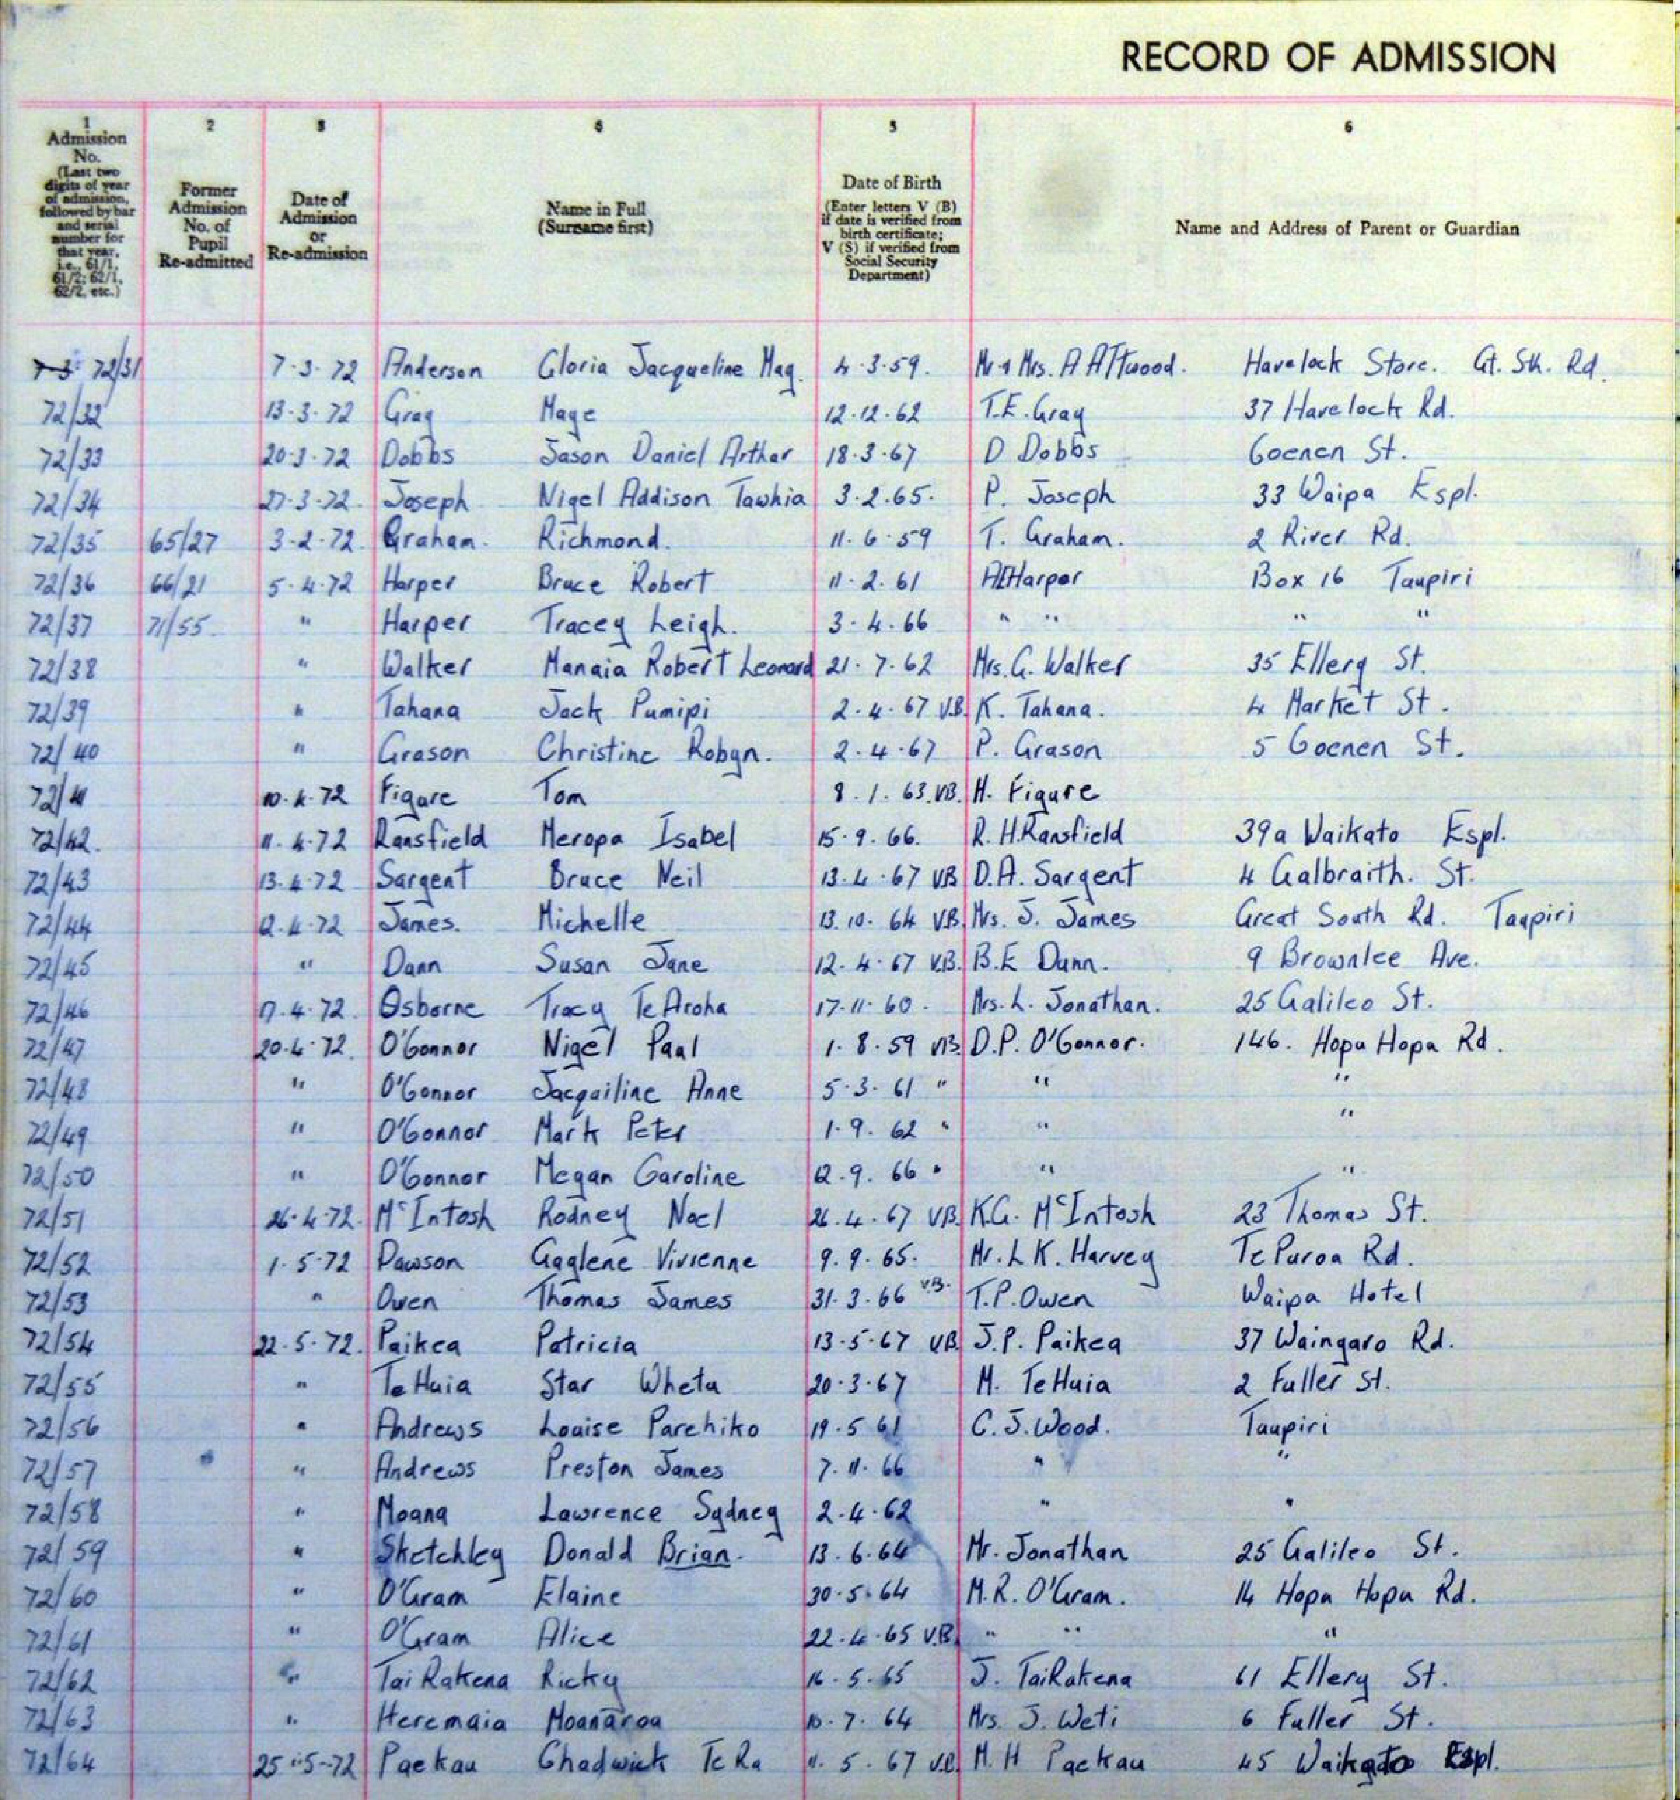 RECORD OF ADMISSION
1 2 3 4 5 6
Admission No. (Last two digits of year of admission, followed by bar and serial number for that year, i.e., 61/1, 61/2; 62/1, 62/2, etc.)
Former Admission No. of Pupil Re-admitted
Date of Admission or Re-admission
Name in Full (Surname first)
Date of Birth (Enter letters V (B) if date is verified from birth certificate; V (S) if verified from Social Security Department)
Name and Address of Parent or Guardian
7-3- 72/31 7-3-72 Anderson Gloria Jacqueline May. 4-3-59. Mr & Mrs. A Attwood. Havelock Store. Gt. Sth. Rd.
72/32 13-3-72 Gray Maye 12-12-62 T.E. Gray 37 Havelock Rd.
72/33 20-3-72 Dobbs Jason Daniel Arthur 18-3-67 D Dobbs Goenen St.
72/34 27-3-72. Joseph Nigel Addison Tawhia 3-2-65. P. Joseph 33 Waipa Espl.
72/35 65/27 3-2-72. Graham. Richmond. 11-6-59 T. Graham. 2 River Rd.
72/36 66/21 5-4-72 Harper Bruce Robert 11-2-61 AE Harper Box 16 Taupiri
72/37 71/55 " Harper Tracey Leigh. 3-4-66 " " " "
72/38 " Walker Manaia Robert Leonard 21-7-62 Mrs. G. Walker 35 Ellery St.
72/39 " Tahana Jack Pumipi 2-4-67 V.B. K. Tahana. 4 Market St.
72/40 " Grason Christine Robyn. 2-4-67 P. Grason 5 Goenen St.
72/41 10-4-72 Figure Tom 8-1-63 V.B. H. Figure
72/42. 11-4-72 Ransfield Meropa Isabel 15-9-66. R. H. Ransfield 39a Waikato Espl.
72/43 13-4-72 Sargent Bruce Neil 13-4-67 V.B D.A. Sargent 4 Galbraith. St.
72/44 12-4-72 James. Michelle 13-10-64 V.B. Mrs. J. James Great South Rd. Taupiri
72/45 " Dunn Susan Jane 12-4-67 V.B. B.E Dunn. 9 Brownlee Ave.
72/46 17-4-72. Osborne Tracy Te Aroha 17-11-60. Mrs. L. Jonathan. 25 Galileo St.
72/47 20-4-72. O'Connor Nigel Paul 1-8-59 V.B. D.P. O'Connor. 146. Hopu Hopu Rd.
72/48 " O'Connor Jacquiline Anne 5-3-61 " " "
72/49 " O'Connor Mark Peter 1-9-62 " " "
72/50 " O'Connor Megan Caroline 12-9-66 " " "
72/51 26-4-72. McIntosh Rodney Noel 26-4-67 V.B. K.G. McIntosh 23 Thomas St.
72/52 1-5-72 Dawson Gaylene Vivienne 9-9-65. Mr. L K. Harvey Te Puroa Rd.
72/53 " Owen Thomas James 31-3-66 V.B. T.P. Owen Waipa Hotel
72/54 22-5-72. Paikea Patricia 13-5-67 V.B. J.P. Paikea 37 Waingaro Rd.
72/55 " Te Huia Star Whetu 20-3-67 M. Te Huia 2 Fuller St.
72/56 " Andrews Louise Parehiko 19-5-61 C.J. Wood. Taupiri
72/57 " Andrews Preston James 7-11-66 " "
72/58 " Moana Lawrence Sydney 2-4-62 " "
72/59 " Sketchley Donald Brian. 13-6-64 Mr. Jonathan 25 Galileo St.
72/60 " O'Gram Elaine 30-5-64 M.R. O'Gram. 14 Hopu Hopu Rd.
72/61 " O'Gram Alice 22-4-65 V.B. " " "
72/62 " Tai Rakena Ricky 16-5-65 J. TaiRakena 61 Ellery St.
72/63 " Heremaia Moanaroa 10-7-64 Mrs. J. Weti 6 Fuller St.
72/64 25-5-72 Paekau Chadwick Te Ra 11-5-67 V.B. M. H Paekau 45 Waikato Espl.